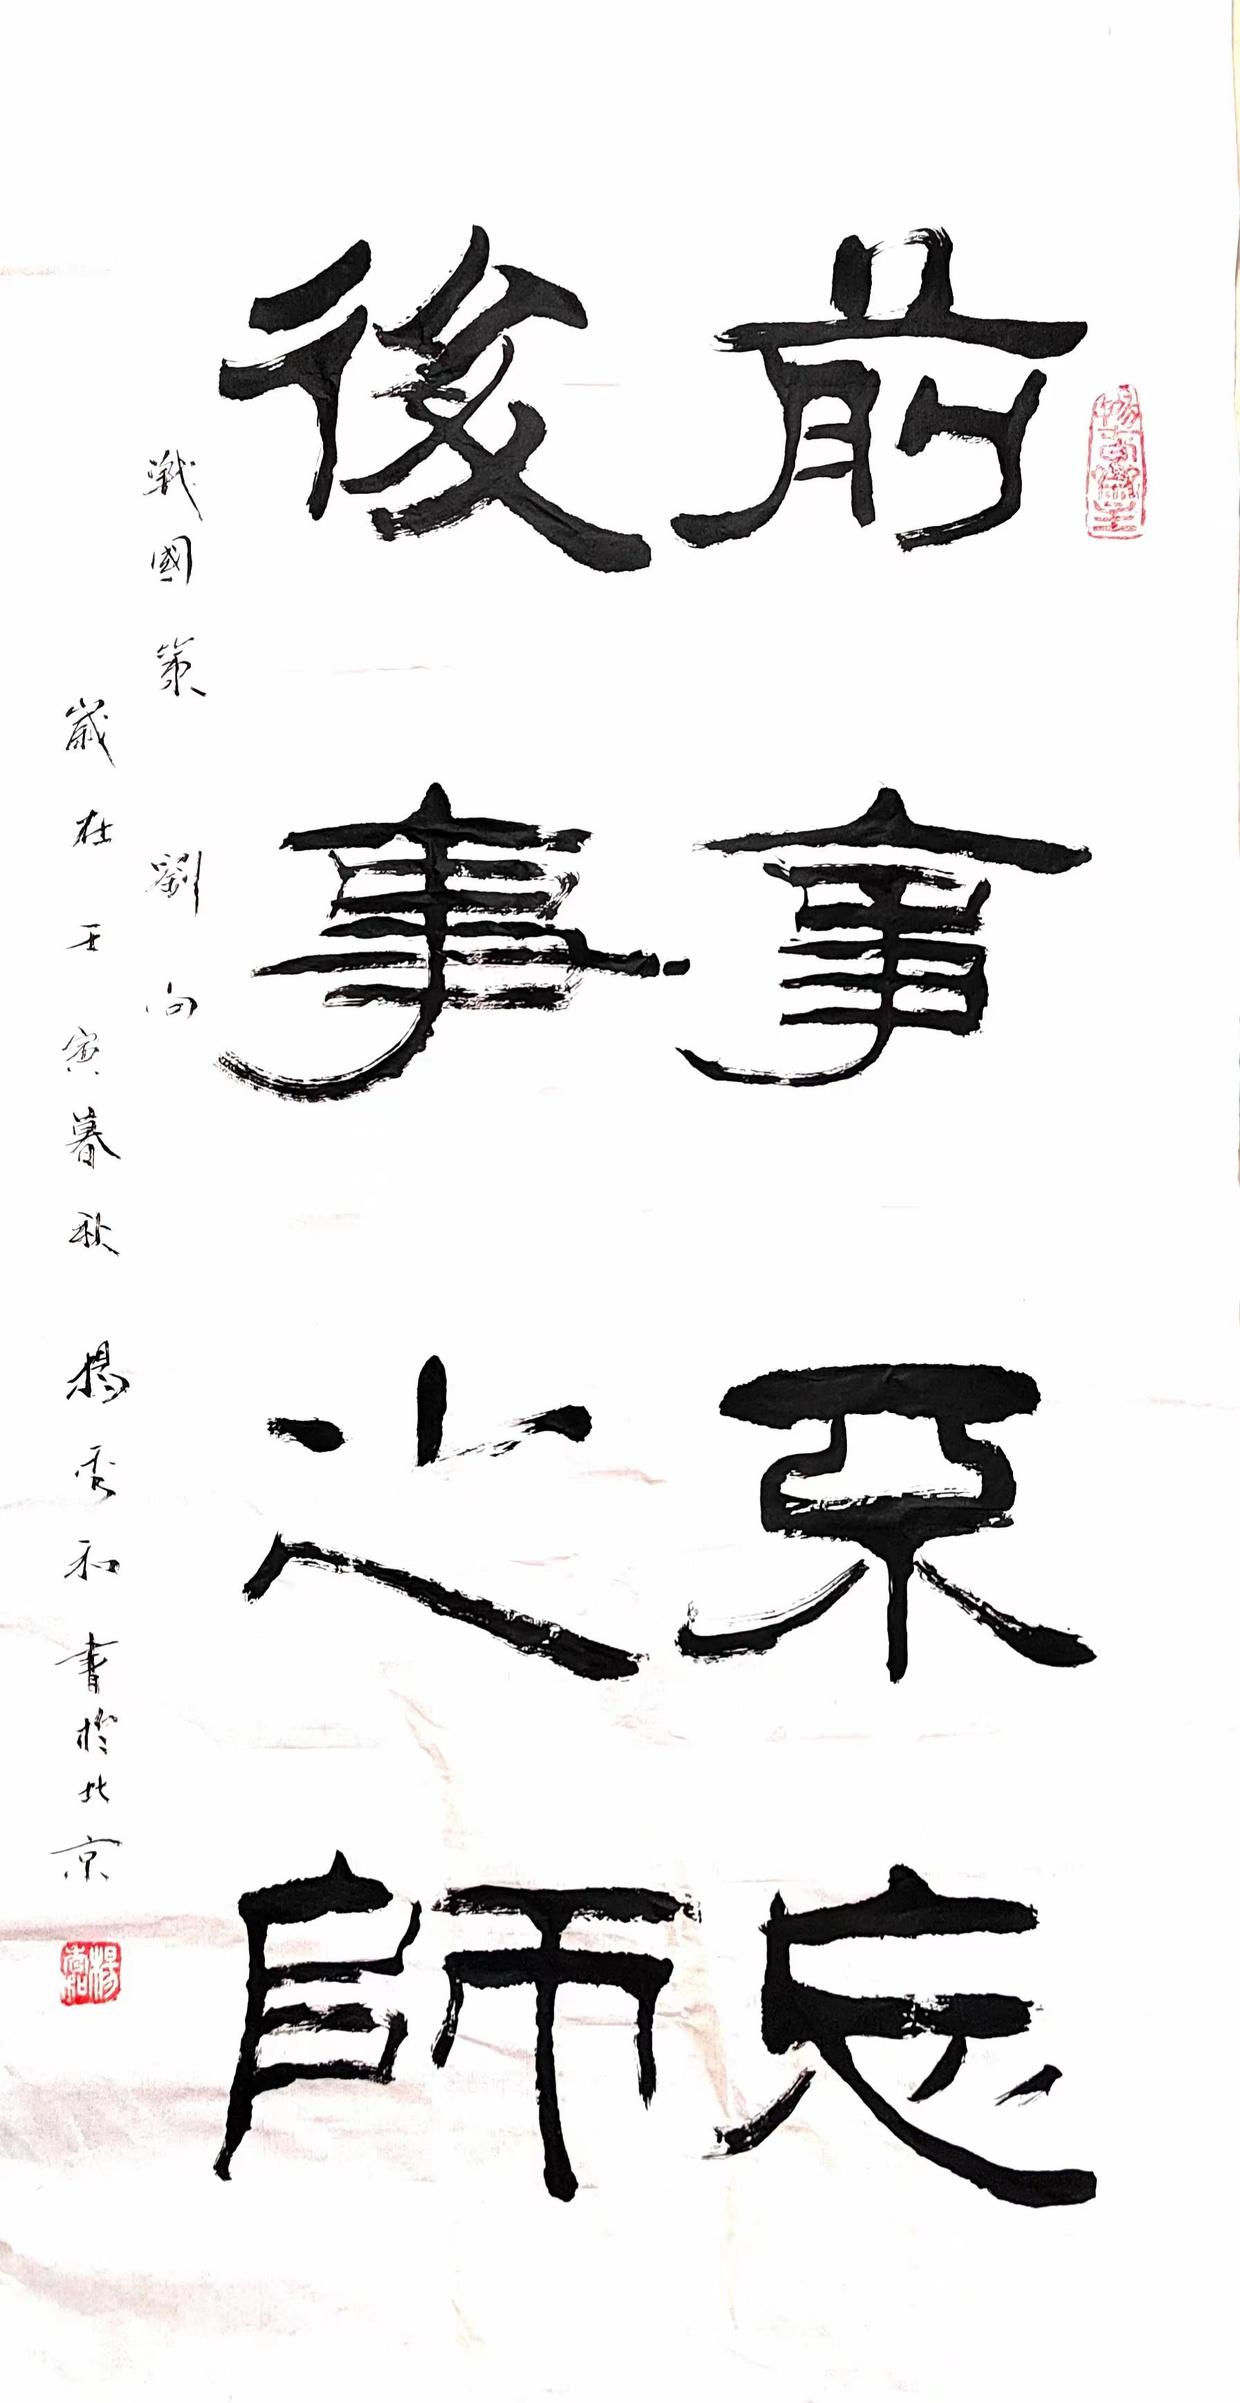 前事不忘
後事之師
戰國策 劉向
歲在壬寅暮秋 楊秀和書於北京